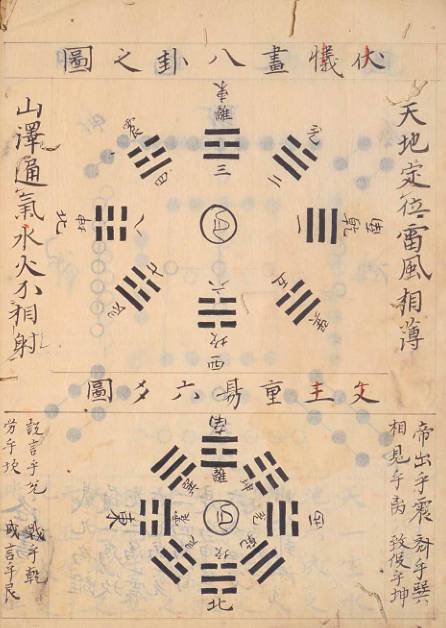 伏犧畫八卦之圖
天地定位雷風相薄
東
離
三
兌
二
震
四
南乾
一
北坤
八
巽
五
六
坎
西
山澤通氣水火不相射
文王重易六爻圖
帝出乎震 齊乎巽
相見乎离 致役乎坤
南
離
坤
巽
西
兌
東
震
乾
艮
坎
北
說言乎兌 戰乎乾
勞乎坎 成言乎艮